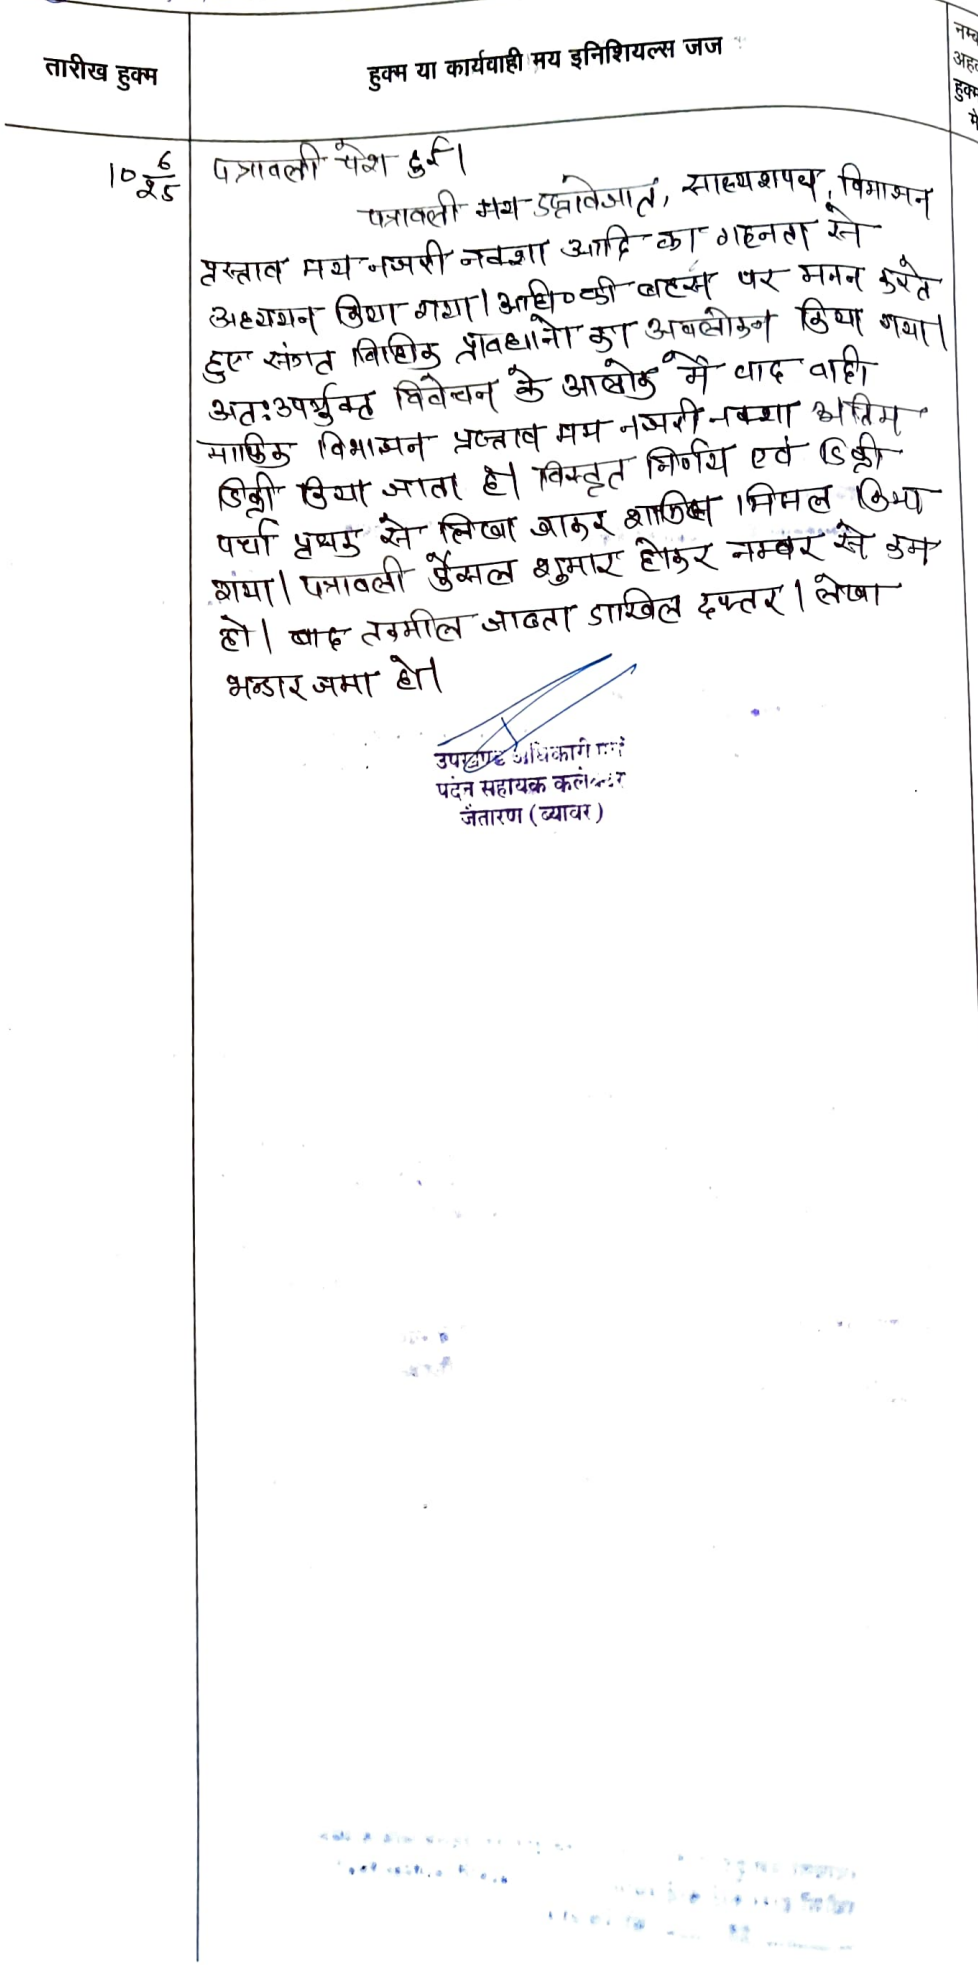 तारीख हुक्म
हुक्म या कार्यवाही मय इनिशियल्स जज
नम्ब
अह
हुक्म
मे
10 6/25
पत्रावली पेश हुई।
पत्रावली मय दस्तावेजात, साक्ष्य शपथ, विभाजन
प्रस्ताव मय नजरी नक्शा आदि का गहनता से
अध्ययन किया गया। अधि० की बहस पर मनन करते
हुए संगत विधिक प्रावधानो का अवलोकन किया गया।
अतः उपर्युक्त विवेचन के आलोक में वाद वादी
माफिक विभाजन प्रस्ताव मय नजरी नक्शा अंतिम
डिक्री किया जाता है। विस्तृत निर्णय एवं डिक्री
पर्चा पृथक से लिखा जाकर शामिल मिसल किया
गया। पत्रावली फैसल शुमार होकर नम्बर से कम
हो। बाद तकमील जाब्ता दाखिल दफ्तर। लेखा
भन्डार जमा हो।
उपखण्ड अधिकारी एवं
पदेन सहायक कलेक्टर
जैतारण (ब्यावर)